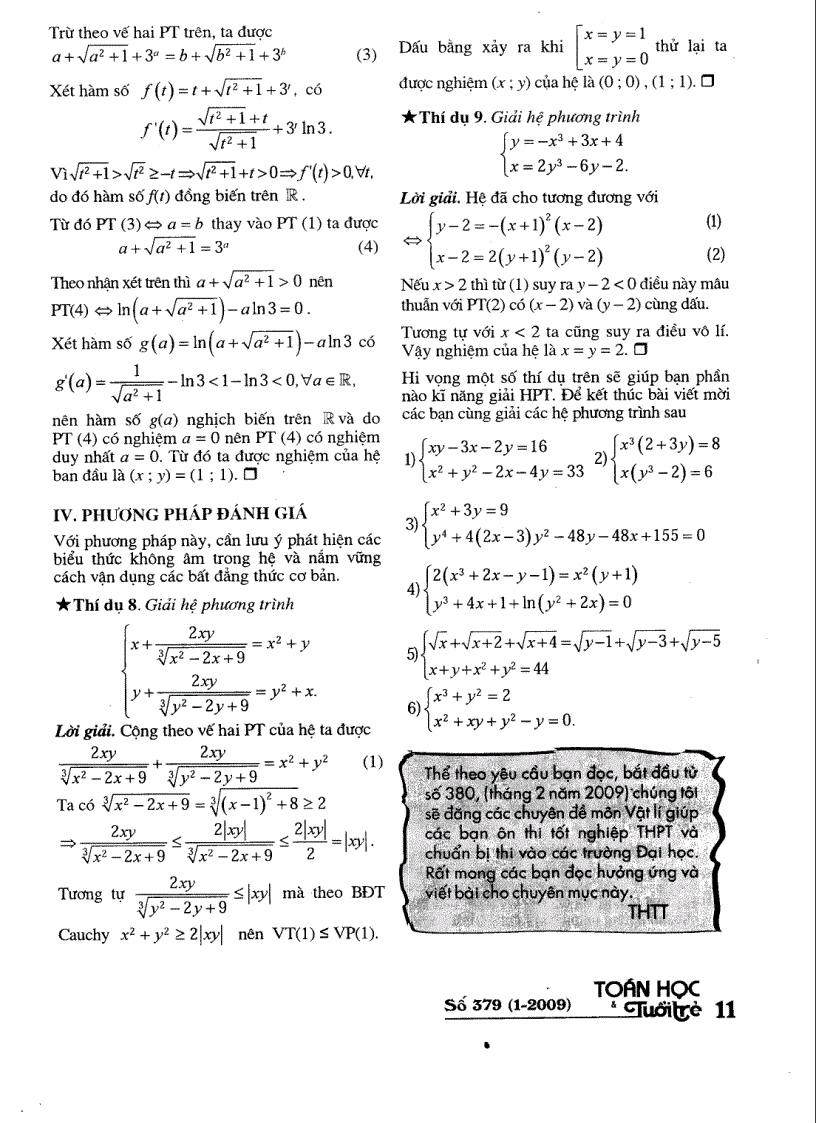 Trừ theo vế hai PT trên, ta được
a + √(a² + 1) + 3ᵃ = b + √(b² + 1) + 3ᵇ (3)
Xét hàm số f(t) = t + √(t² + 1) + 3ᵗ, có
f'(t) = (√(t² + 1) + t)/√(t² + 1) + 3ᵗ ln3.
Vì √(t² + 1) > √t² ≥ −t ⇒ √(t² + 1) + t > 0 ⇒ f'(t) > 0, ∀t,
do đó hàm số f(t) đồng biến trên ℝ.
Từ đó PT (3) ⇔ a = b thay vào PT (1) ta được
a + √(a² + 1) = 3ᵃ (4)
Theo nhận xét trên thì a + √(a² + 1) > 0 nên
PT(4) ⇔ ln(a + √(a² + 1)) − a ln3 = 0.
Xét hàm số g(a) = ln(a + √(a² + 1)) − a ln3 có
g'(a) = 1/√(a² + 1) − ln3 < 1 − ln3 < 0, ∀a ∈ ℝ,
nên hàm số g(a) nghịch biến trên ℝ và do
PT (4) có nghiệm a = 0 nên PT (4) có nghiệm
duy nhất a = 0. Từ đó ta được nghiệm của hệ
ban đầu là (x ; y) = (1 ; 1). ❒
IV. PHƯƠNG PHÁP ĐÁNH GIÁ
Với phương pháp này, cần lưu ý phát hiện các
biểu thức không âm trong hệ và nắm vững
cách vận dụng các bất đẳng thức cơ bản.
★Thí dụ 8. Giải hệ phương trình
{ x + 2xy/∛(x² − 2x + 9) = x² + y
y + 2xy/∛(y² − 2y + 9) = y² + x.
Lời giải. Cộng theo vế hai PT của hệ ta được
2xy/∛(x² − 2x + 9) + 2xy/∛(y² − 2y + 9) = x² + y² (1)
Ta có ∛(x² − 2x + 9) = ∛((x − 1)² + 8) ≥ 2
⇒ 2xy/∛(x² − 2x + 9) ≤ 2|xy|/∛(x² − 2x + 9) ≤ 2|xy|/2 = |xy|.
Tương tự 2xy/∛(y² − 2y + 9) ≤ |xy| mà theo BĐT
Cauchy x² + y² ≥ 2|xy| nên VT(1) ≤ VP(1).
Dấu bằng xảy ra khi [ x = y = 1
x = y = 0 thử lại ta
được nghiệm (x ; y) của hệ là (0 ; 0) , (1 ; 1). ❒
★Thí dụ 9. Giải hệ phương trình
{ y = −x³ + 3x + 4
x = 2y³ − 6y − 2.
Lời giải. Hệ đã cho tương đương với
⇔ { y − 2 = −(x + 1)²(x − 2) (1)
x − 2 = 2(y + 1)²(y − 2) (2)
Nếu x > 2 thì từ (1) suy ra y − 2 < 0 điều này mâu
thuẫn với PT(2) có (x − 2) và (y − 2) cùng dấu.
Tương tự với x < 2 ta cũng suy ra điều vô lí.
Vậy nghiệm của hệ là x = y = 2. ❒
Hi vọng một số thí dụ trên sẽ giúp bạn phần
nào kĩ năng giải HPT. Để kết thúc bài viết mời
các bạn cùng giải các hệ phương trình sau
1) { xy − 3x − 2y = 16
x² + y² − 2x − 4y = 33
2) { x³(2 + 3y) = 8
x(y³ − 2) = 6
3) { x² + 3y = 9
y⁴ + 4(2x − 3)y² − 48y − 48x + 155 = 0
4) { 2(x³ + 2x − y − 1) = x²(y + 1)
y³ + 4x + 1 + ln(y² + 2x) = 0
5) { √x + √(x+2) + √(x+4) = √(y−1) + √(y−3) + √(y−5)
x + y + x² + y² = 44
6) { x³ + y² = 2
x² + xy + y² − y = 0.
Thể theo yêu cầu bạn đọc, bắt đầu từ
số 380, (tháng 2 năm 2009) chúng tôi
sẽ đăng các chuyên đề môn Vật lí giúp
các bạn ôn thi tốt nghiệp THPT và
chuẩn bị thi vào các trường Đại học.
Rất mong các bạn đọc hưởng ứng và
viết bài cho chuyên mục này.
THTT
Số 379 (1-2009) TOÁN HỌC
& Tuổi trẻ 11